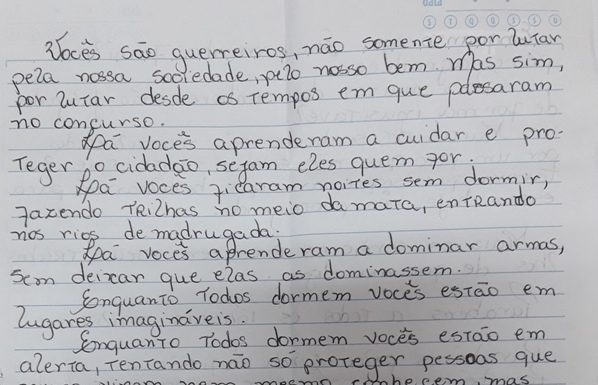 data
S T Q Q S S D
Vocês são guerreiros, não somente por lutar
pela nossa sociedade, pelo nosso bem. Mas sim,
por lutar desde os tempos em que passaram
no concurso.
Lá vocês aprenderam a cuidar e pro-
teger o cidadão, sejam eles quem for.
Lá vocês ficaram noites sem dormir,
fazendo trilhas no meio da mata, entrando
nos rios de madrugada.
Lá vocês aprenderam a dominar armas,
sem deixar que elas as dominassem.
Enquanto todos dormem vocês estão em
lugares imagináveis.
Enquanto todos dormem vocês estão em
alerta, tentando não só proteger pessoas que
nem mesmo conhecem, mas